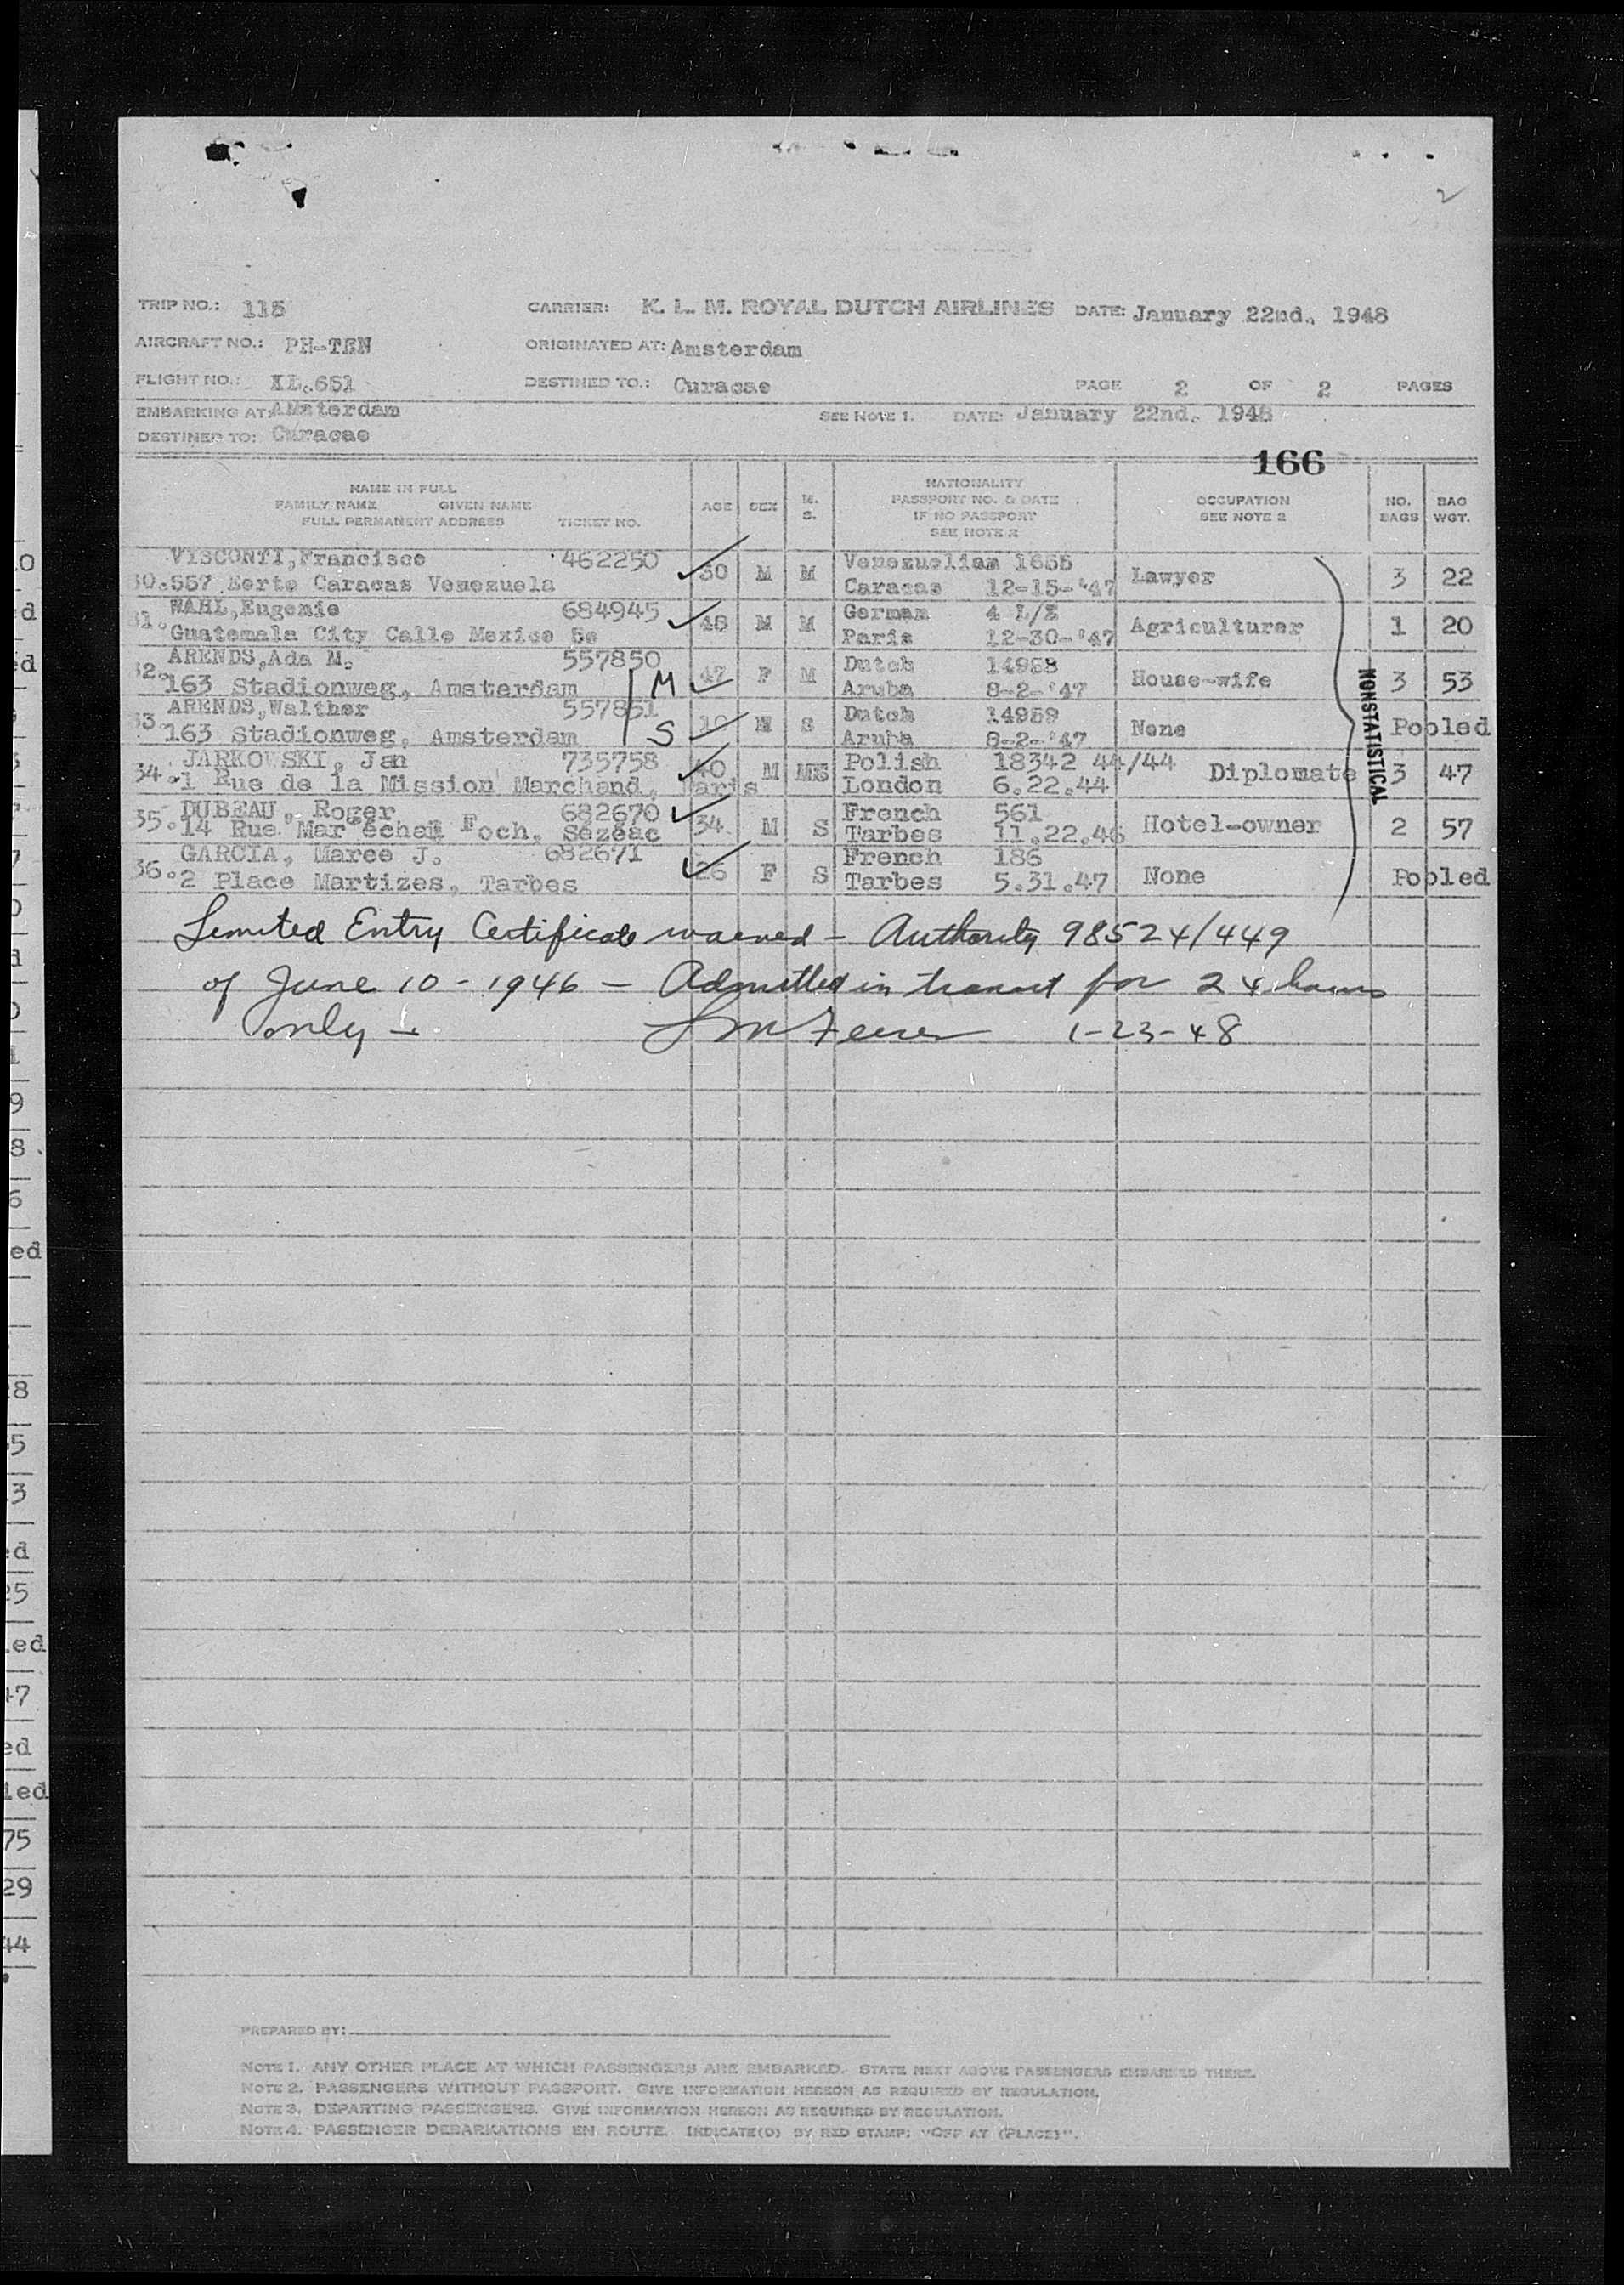 2
TRIP NO.: 118 CARRIER: K. L. M. ROYAL DUTCH AIRLINES DATE: January 22nd. 1948
AIRCRAFT NO.: PH-TEN ORIGINATED AT: Amsterdam
FLIGHT NO.: XL.651 DESTINED TO.: Curacao PAGE 2 OF 2 PAGES
EMBARKING AT: Amsterdam SEE NOTE 1. DATE: January 22nd. 1948
DESTINED TO: Curacao
166
NAME IN FULL
FAMILY NAME GIVEN NAME
FULL PERMANENT ADDRESS TICKET NO. AGE SEX M. S. NATIONALITY PASSPORT NO. & DATE IF NO PASSPORT SEE NOTE 2 OCCUPATION SEE NOTE 2 NO. BAGS BAG WGT.
VISCONTI, Francisco 462250 Venezuelian 1655
30. 557 Caracas Venezuela 30 M M Caracas 12-15-'47 Lawyer 3 22
WAHL, Eugenie 684945 German 4 L/E
31. Guatemala City Calle Mexico 48 M M Paris 12-30-'47 Agriculturer 1 20
ARENDS, Ada M. 557850 Dutch 14958
32. 163 Stadionweg, Amsterdam M 47 F M Aruba 8-2-'47 House-wife 3 53
ARENDS, Walther 557851 Dutch 14959
33. 163 Stadionweg, Amsterdam S 10 M S Aruba 8-2-'47 None Pooled
JARKOWSKI, Jan 735758 Polish 18342 44/44
34. 1 Rue de la Mission Marchand, Paris 40 M MS London 6.22.44 Diplomate 3 47
DUBEAU, Roger 682670 French 561
35. 14 Rue Mar échal Foch, Sézéac 34 M S Tarbes 11.22.46 Hotel-owner 2 57
GARCIA, Marce J. 682671 French 186
36. 2 Place Martizes, Tarbes 26 F S Tarbes 5.31.47 None Pooled
NONSTATISTICAL
Limited Entry Certificate waived - Authority 98524/449
of June 10 - 1946 - Admitted in transit for 24 hours
only - 1-23-48
PREPARED BY:
NOTE 1. ANY OTHER PLACE AT WHICH PASSENGERS ARE EMBARKED. STATE NEXT ABOVE PASSENGERS EMBARKED THERE.
NOTE 2. PASSENGERS WITHOUT PASSPORT. GIVE INFORMATION HEREON AS REQUIRED BY REGULATION.
NOTE 3. DEPARTING PASSENGERS. GIVE INFORMATION HEREON AS REQUIRED BY REGULATION.
NOTE 4. PASSENGER DEBARKATIONS EN ROUTE. INDICATE(D) BY RED STAMP: "OFF AT (PLACE)".